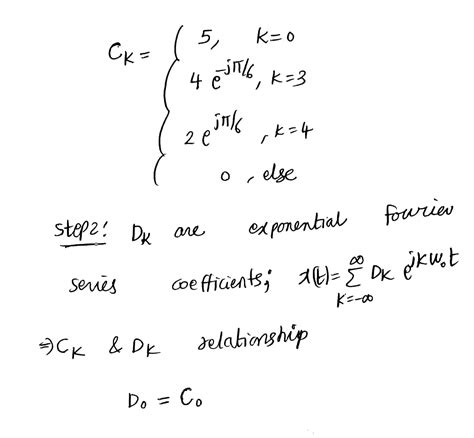 C_K = { 5, K=0
4 e^{-jπ/6}, K=3
2 e^{jπ/6}, K=4
0, else
Step2: D_K are exponential fourier
series coefficients; x(t)= ∑_{K=-∞}^{∞} D_K e^{jKω_0t}
⇒ C_K & D_K relationship
D_0 = C_0